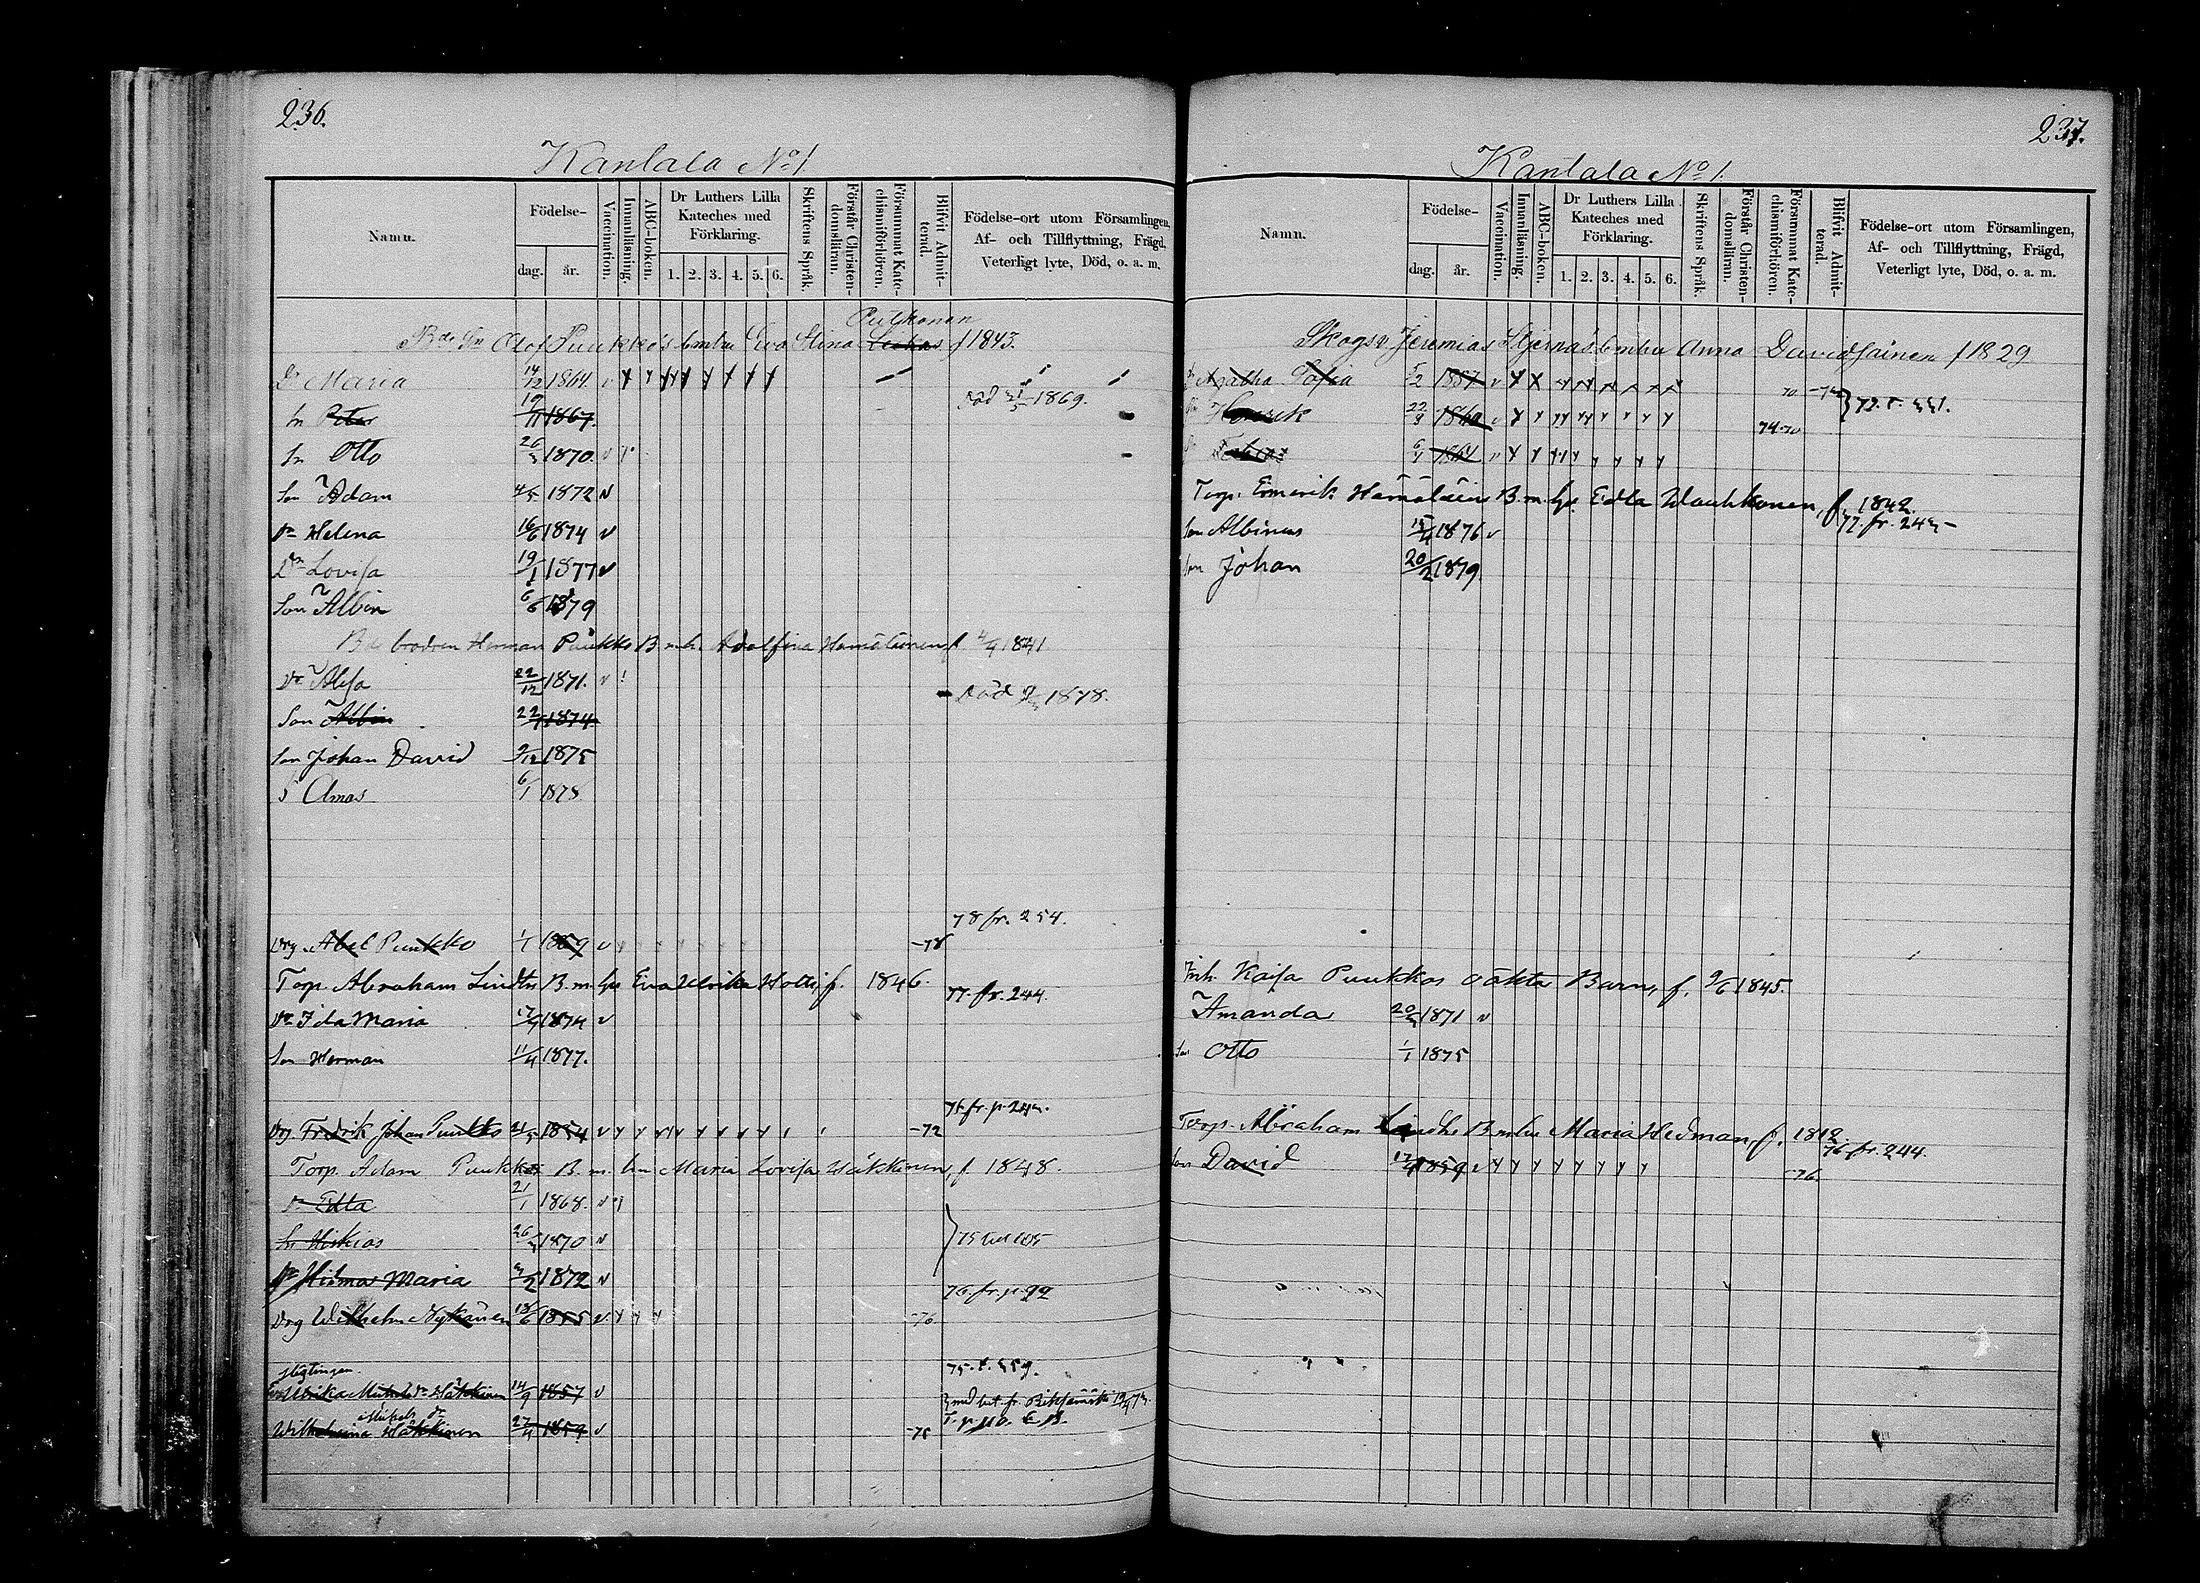 236.
Kantala No 1.
Namn.
Födelse-
dag.
år.
Vaccination.
Innanläsning.
ABC-boken.
Dr Luthers Lilla Kateches med Förklaring.
1. 2. 3. 4. 5. 6.
Skriftens Språk.
Förstår Christendomsläran.
Försummat Katechismiförhören.
Blifvit Admitterad.
Födelse-ort utom Församlingen, Af- och Tillflyttning, Frägd, Veterligt lyte, Död, o. a. m.
Putkonen
Olof Puukko's Enda Eva Stina f 1843.
Dr Maria 14/12 1864 v
Sn Peter 19/11 1867. död 1869.
Sn Otto 26/3 1870. v
Son Adam 4/5 1872 v
Dr Helena 16/6 1874 v
Dr Lovisa 19/1 1877 v
Son Albin 6/6 1879
brodren Herman Puukko B. m. h. Adolfina Hämäläinen f. 4/9 1841
Dr Alfa 22/12 1871. v
Son Albin 22/7 1874. Död 1878.
Son Johan David 9/12 1875
S Amos 6/1 1878
78 fr. 254.
Drg Abel Puukko 1/1 1859 v -78
Torp. Abraham Lindhs B. m. hu Eva Ulrika Holtti, f. 1846.
77. fr. 244.
Dr Ida Maria 17/7 1874 v
Son Herman 11/4 1877.
Drg. Fredrik Johan Puukko 1854 v -72
Torp. Adam Puukkos B. m. hu Maria Lovisa Häkkinen, f. 1848.
Dr Edla 21/1 1868. v
Sn Hiskias 26/3 1870 v
75 till 105
Dr Hilma Maria 1872 v
76. fr. p. 92
Drg Wilhelm Nykänen 18/6 1855 v -76.
flygtingen
75. t. 559.
Ulrika Michelsdr Häkkinen 14/9 1857 v
med bet. fr.
Michels dr
Wilhelmina Häkkinen 27/4 1859 v -75
237.
Kantala No 1.
Namn.
Födelse-
dag.
år.
Vaccination.
Innanläsning.
ABC-boken.
Dr Luthers Lilla Kateches med Förklaring.
1. 2. 3. 4. 5. 6.
Skriftens Språk.
Förstår Christendomslinn.
Försummat Katechismiförhören.
Blifvit Admitterad
Födelse-ort utom Församlingen, Af- och Tillflyttning, Frägd, Veterligt lyte, Död, o. a. m.
Skogsv Jeremias Stjernas Enka Anna Davidsainen f 1829
Agatha Sofia 5/2 1857 v 70 -72
72. t. 551.
Henrik 22/3 1860 v 74 70
Tobias 6/1 1864 v
Torp. Emerik Hämäläin B. m. hu. Edla Wauhkonen, f. 1842.
Son Albinus 1876 v
Son Johan 20/2 1879
Inh. Kaisa Puukkos oäkta Barn, f. 9/6 1845.
Amanda 20/5 1871 v
Son Otto 1/1 1875
Torp. Abraham Lindhs B m hu Maria Hedman f. 1812.
76. fr. 244.
Son David 1859 v -76